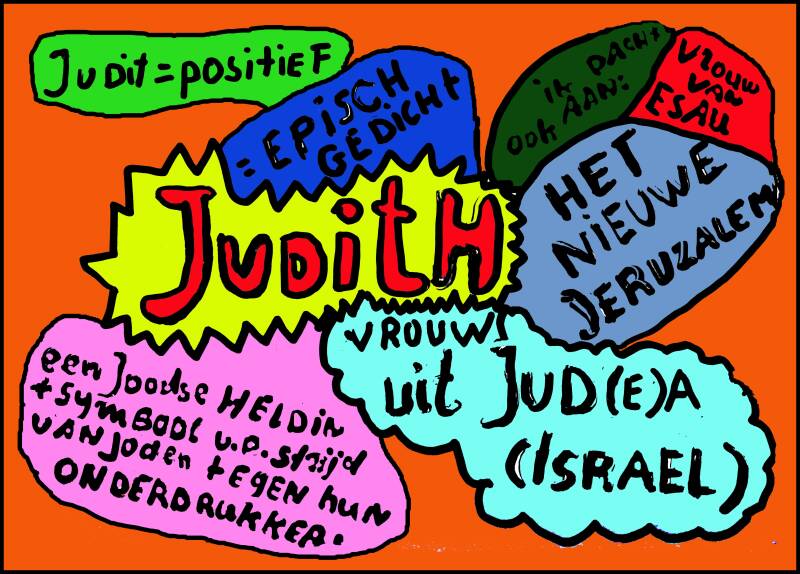 Judit = positief
= EPISCH
GEDICHT
ik DACHt
ook AAN:
VROUW
VAN
ESAU
HET
NIEUWE
JERUZALEM
JuditH
VROUW
uit JUD(E)A
(ISRAEL)
een Joodse HELDIN
+ SYMBOOL v.d. strijd
VAN Joden tEGEN hun
ONDERDRUKKER.